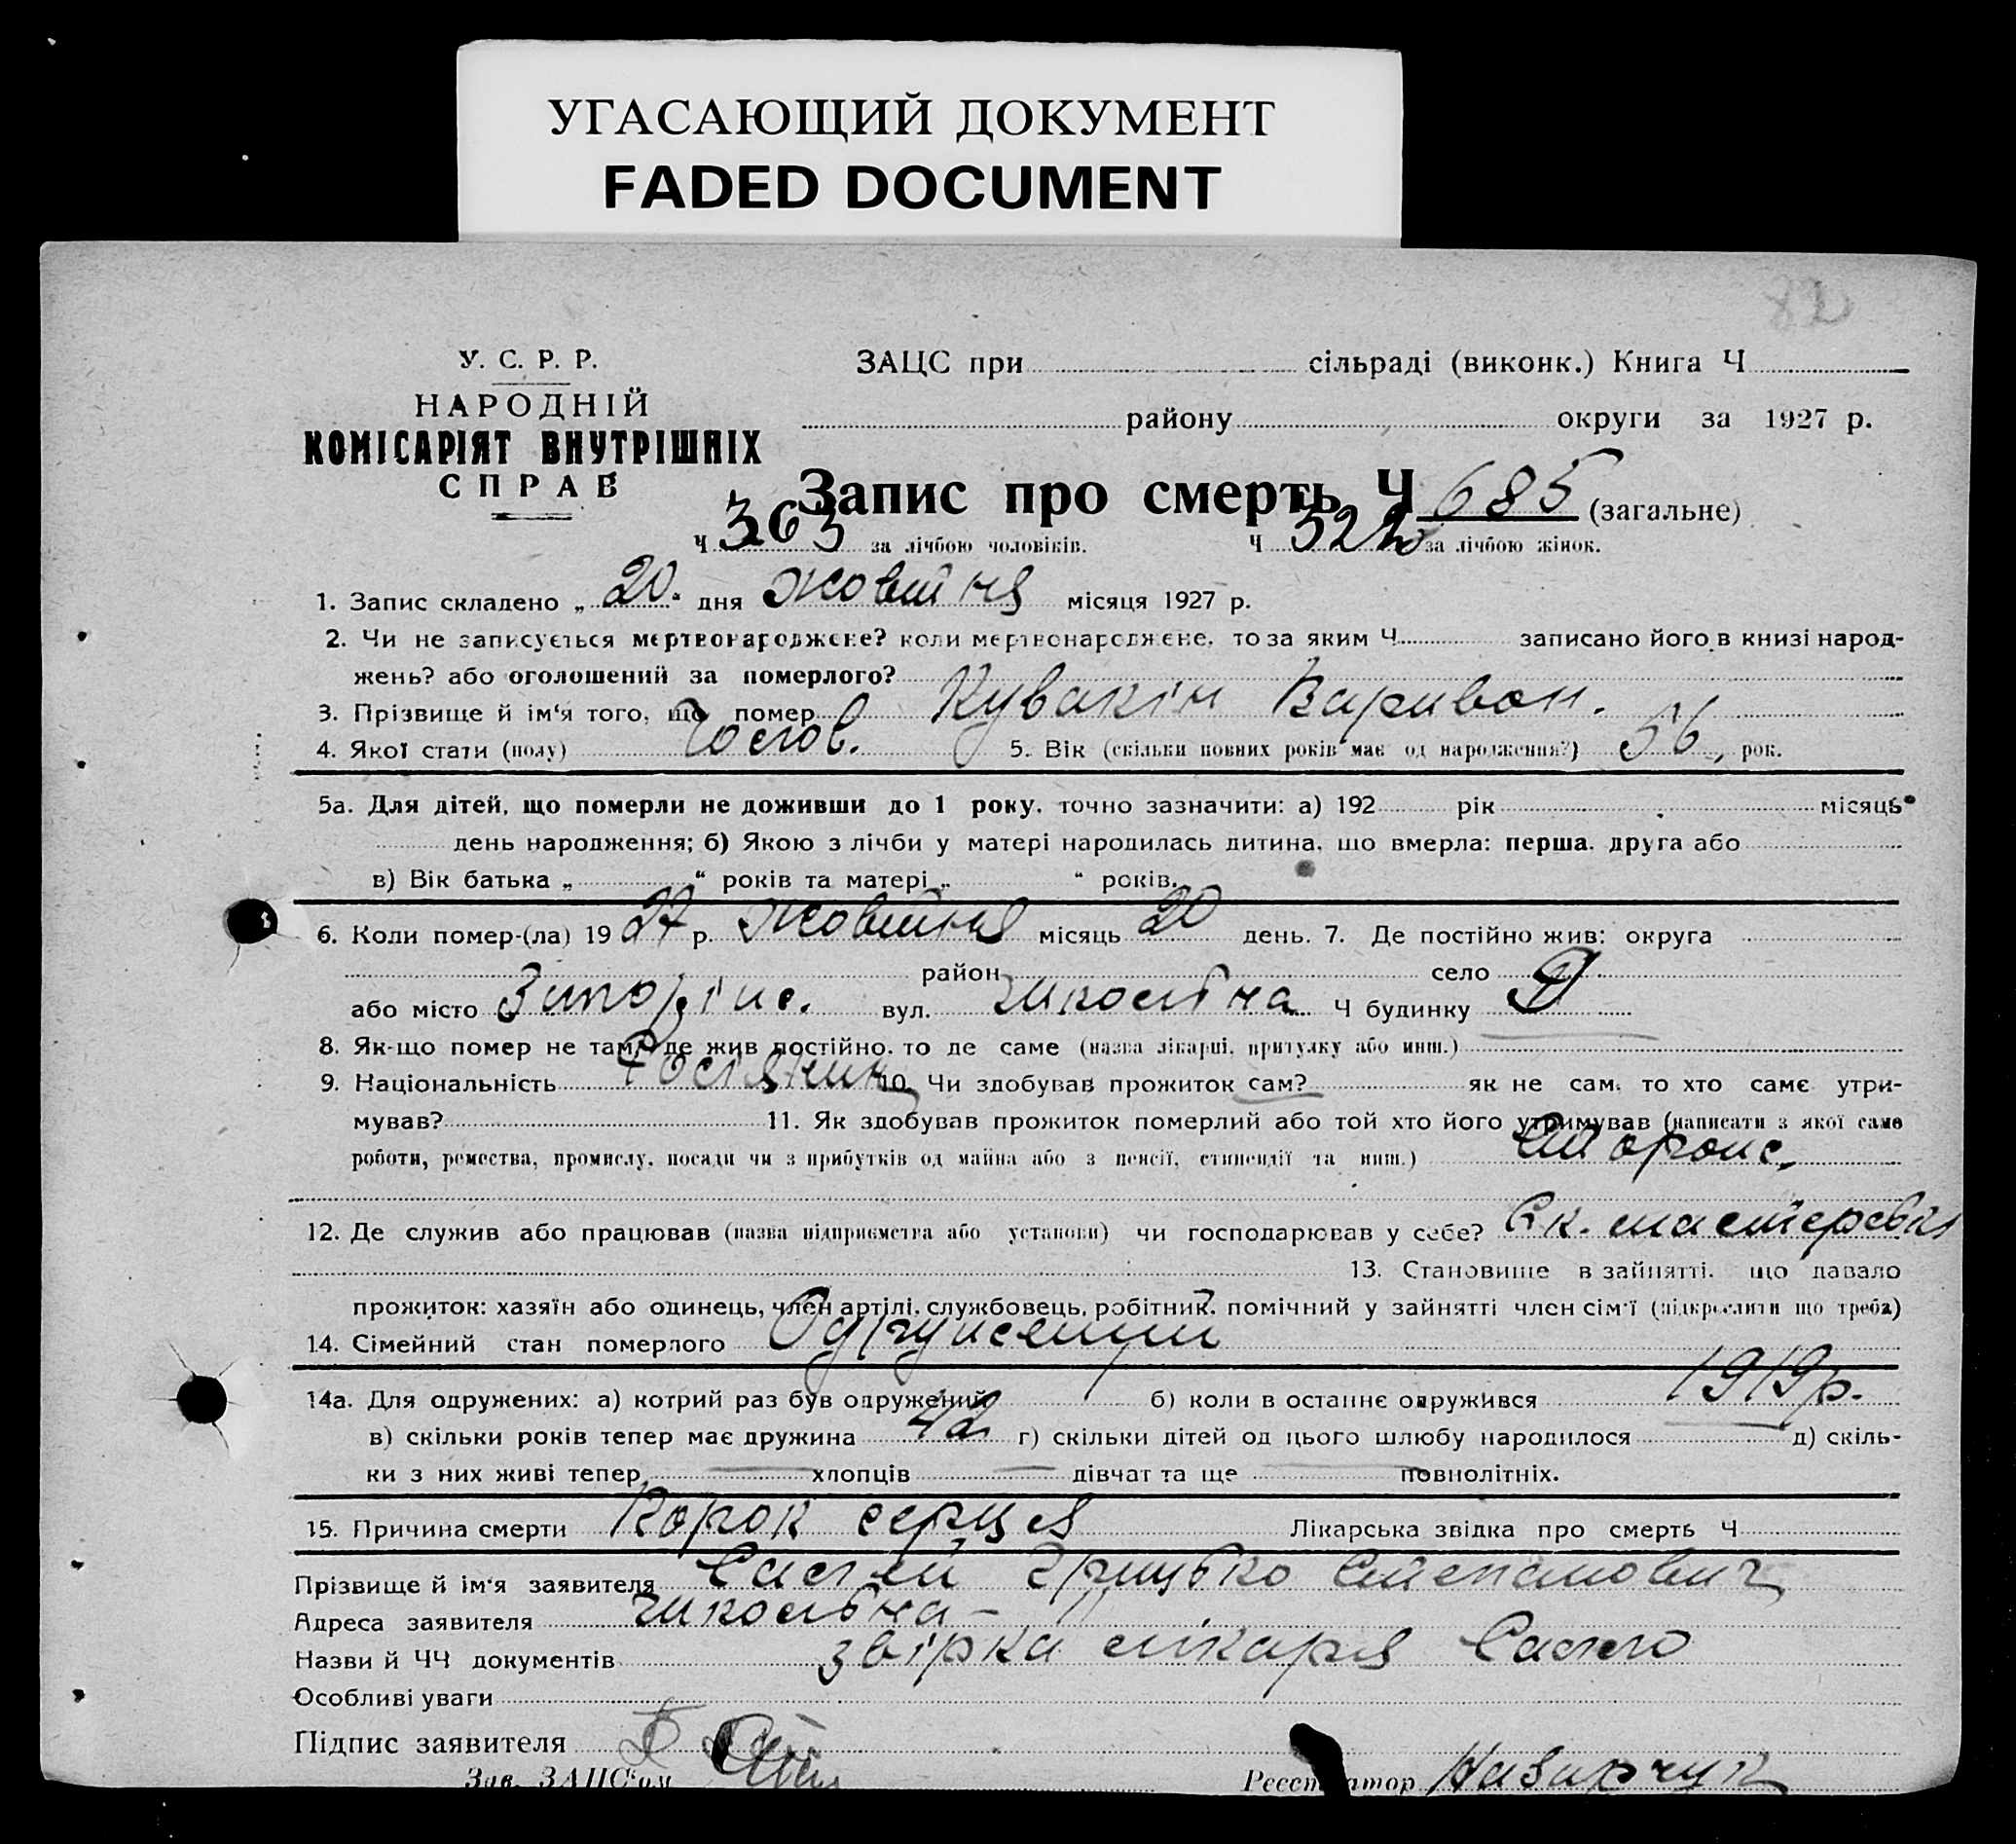 УГАСАЮЩИЙ ДОКУМЕНТ
FADED DOCUMENT
82
У. С. Р. Р.
НАРОДНІЙ
КОМІСАРІЯТ ВНУТРІШНІХ
СПРАВ
ЗАЦС при сільраді (виконк.) Книга Ч
району округи за 1927 р.
Запис про смерть Ч 685 (загальне)
Ч 363 за лічбою чоловіків. Ч 322 за лічбою жінок.
1. Запис складено „ 20 “ дня жовтня місяця 1927 р.
2. Чи не записується мертвонароджене? коли мертвонароджене, то за яким Ч записано його в книзі народ-
жень? або оголошений за померлого?
3. Прізвище й ім'я того, що помер Кувакін Варивон.
4. Якої стати (полу) Чолов. 5. Вік (скільки повних років має од народження?) 56, рок.
5а. Для дітей, що померли не доживши до 1 року, точно зазначити: а) 192 рік місяць
день народження; б) Якою з лічби у матері народилась дитина, що вмерла: перша, друга або
в) Вік батька „ “ років та матері „ “ років.
6. Коли помер-(ла) 1927 р. жовтня місяць 20 день. 7. Де постійно жив: округа
район село
або місто Запоріж. вул. Школьна Ч будинку
8. Як-що помер не там, де жив постійно, то де саме (назва лікарні, притулку або инш.)
9. Національність Росіянин 10. Чи здобував прожиток сам? як не сам, то хто саме утри-
мував? 11. Як здобував прожиток померлий або той хто його утримував (написати з якої саме
роботи, ремества, промислу, посади чи з прибутків од майна або з пенсії, стипендії та инш.) Сторож.
12. Де служив або працював (назва підприємства або установи) чи господарював у себе? Ск. мастерські
13. Становище в зайнятті, що давало
прожиток: хазяїн або одинець, член артілі, службовець, робітник, помічний у зайнятті член сім'ї (підкреслити що треба)
14. Сімейний стан померлого Одружений
14а. Для одружених: а) котрий раз був одружений б) коли в останнє одружився 1919р.
в) скільки років тепер має дружина 42 г) скільки дітей од цього шлюбу народилося д) скіль-
ки з них живі тепер хлопців дівчат та ще повнолітніх.
15. Причина смерти Порок серця Лікарська звідка про смерть Ч
Прізвище й ім'я заявителя Грицько Степанович
Адреса заявителя Школьна - 11
Назви й ЧЧ документів звірка лікаря
Особливі уваги
Підпис заявителя
Зав. ЗАЦС'ом Реєстратор Назарчук